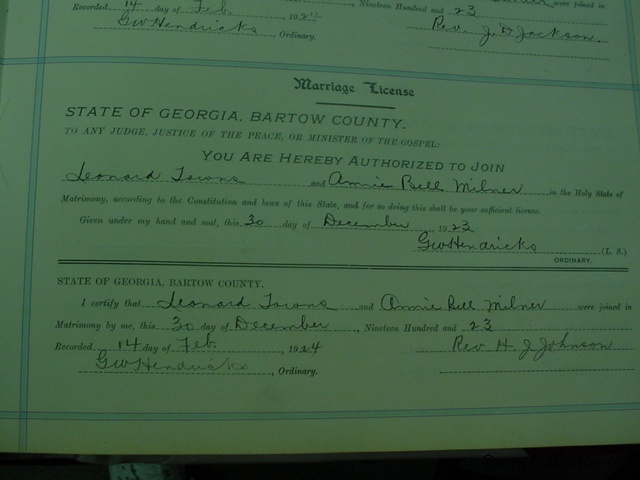 were joined in
Nineteen Hundred and 23
Recorded 14 day of Feb. 192
Rev. J. D. Jackson.
GW Hendricks, Ordinary.
Marriage License
STATE OF GEORGIA, BARTOW COUNTY.
TO ANY JUDGE, JUSTICE OF THE PEACE, OR MINISTER OF THE GOSPEL:
YOU ARE HEREBY AUTHORIZED TO JOIN
Leonard and Annie Bell Milner in the Holy State of
Matrimony, according to the Constitution and laws of this State, and for so doing this shall be your sufficient license.
Given under my hand and seal, this 30 day of December 1923
GW Hendricks (L. S.)
ORDINARY.
STATE OF GEORGIA, BARTOW COUNTY.
I certify that Leonard and Annie Bell Milner were joined in
Matrimony by me, this 30 day of December, Nineteen Hundred and 23
Recorded 14 day of Feb. 1924 Rev H. J Johnson
GW Hendricks, Ordinary.